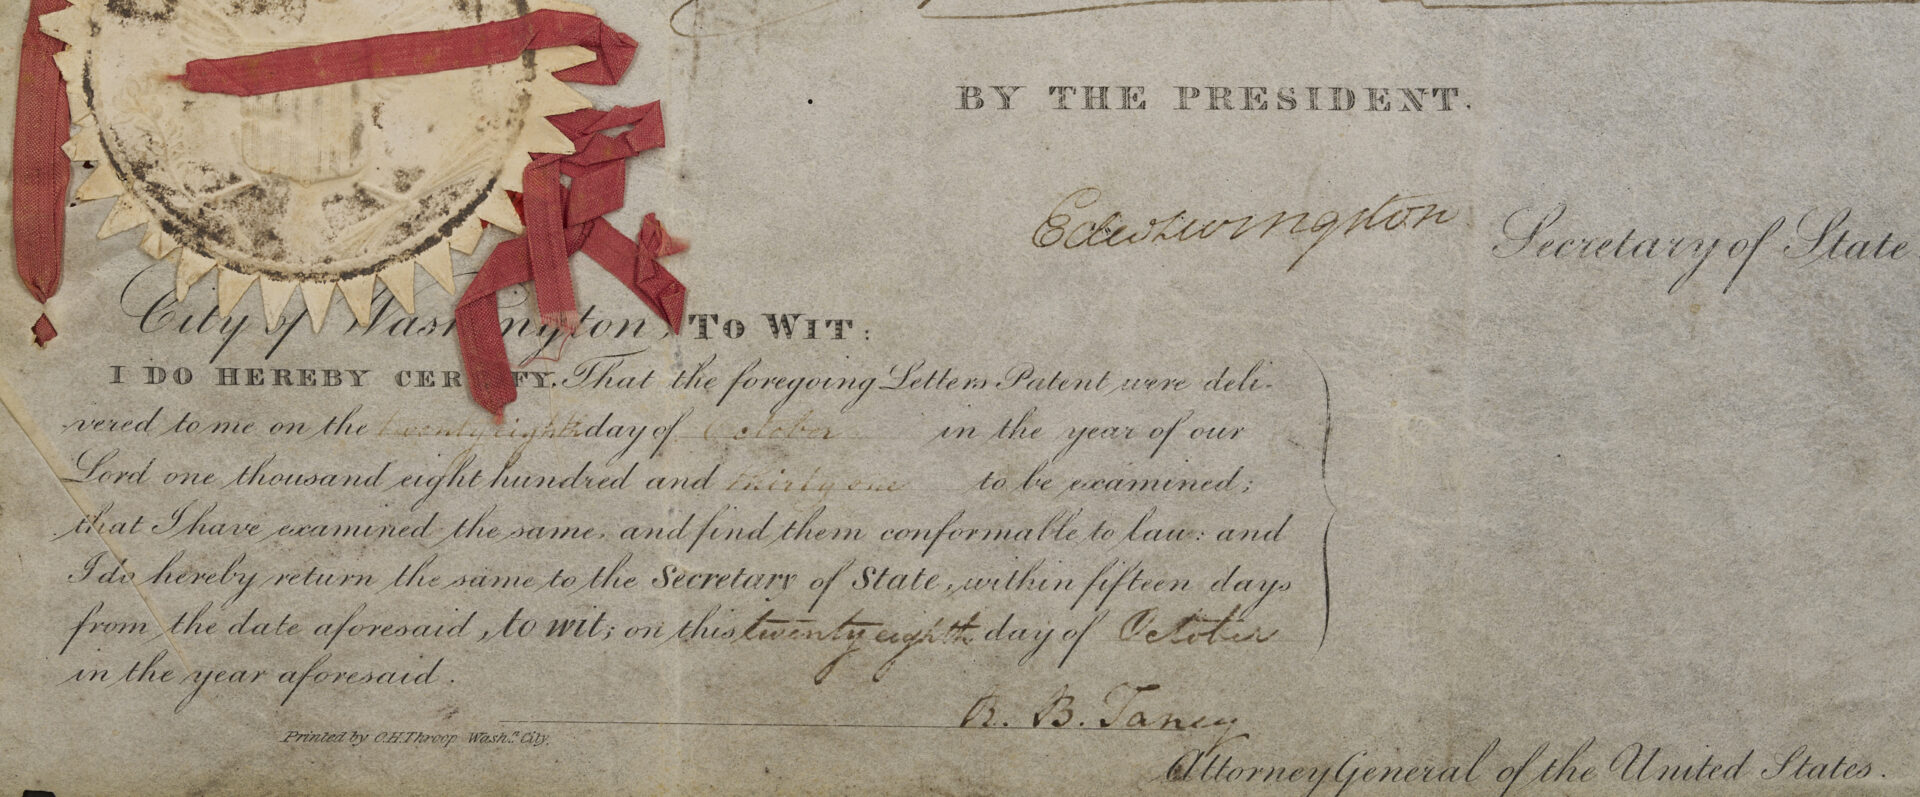 BY THE PRESIDENT.
Edw Livingston Secretary of State.
City of Washington, TO WIT:
I DO HEREBY CERTIFY, That the foregoing Letters Patent were deli-
vered to me on the twenty eighth day of October in the year of our
Lord one thousand eight hundred and thirty one to be examined;
that I have examined the same, and find them conformable to law: and
I do hereby return the same to the Secretary of State, within fifteen days
from the date aforesaid, to wit; on this twenty eighth day of October
in the year aforesaid.
R. B. Taney
Printed by C.H. Throop Washn. City.
Attorney General of the United States.